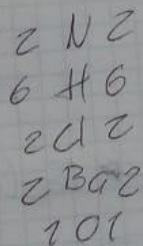 2 N 2
6 H 6
2 Cl 2
2 Ba 2
1 O 1